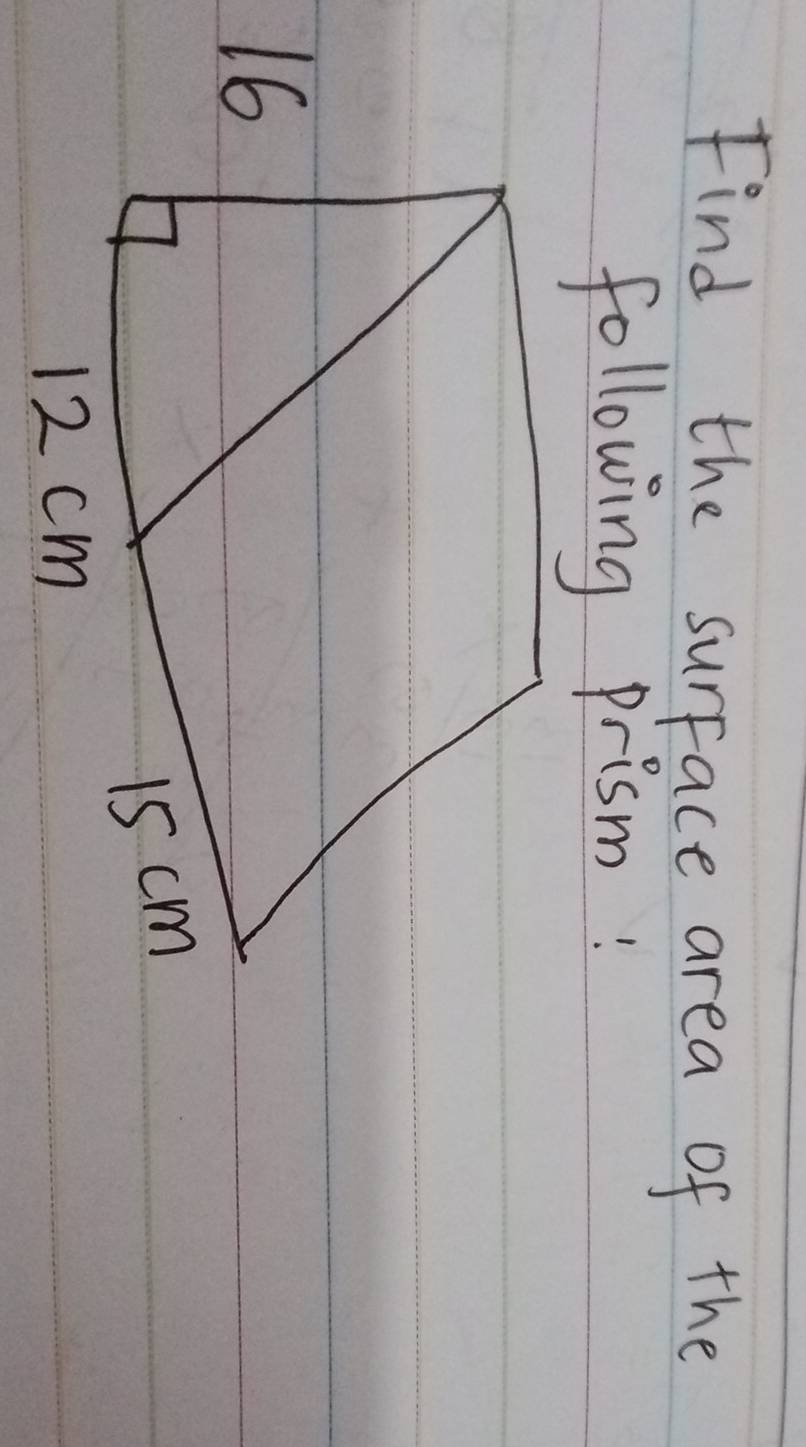 Find the surface area of the
following prism :
16
12 cm
15 cm